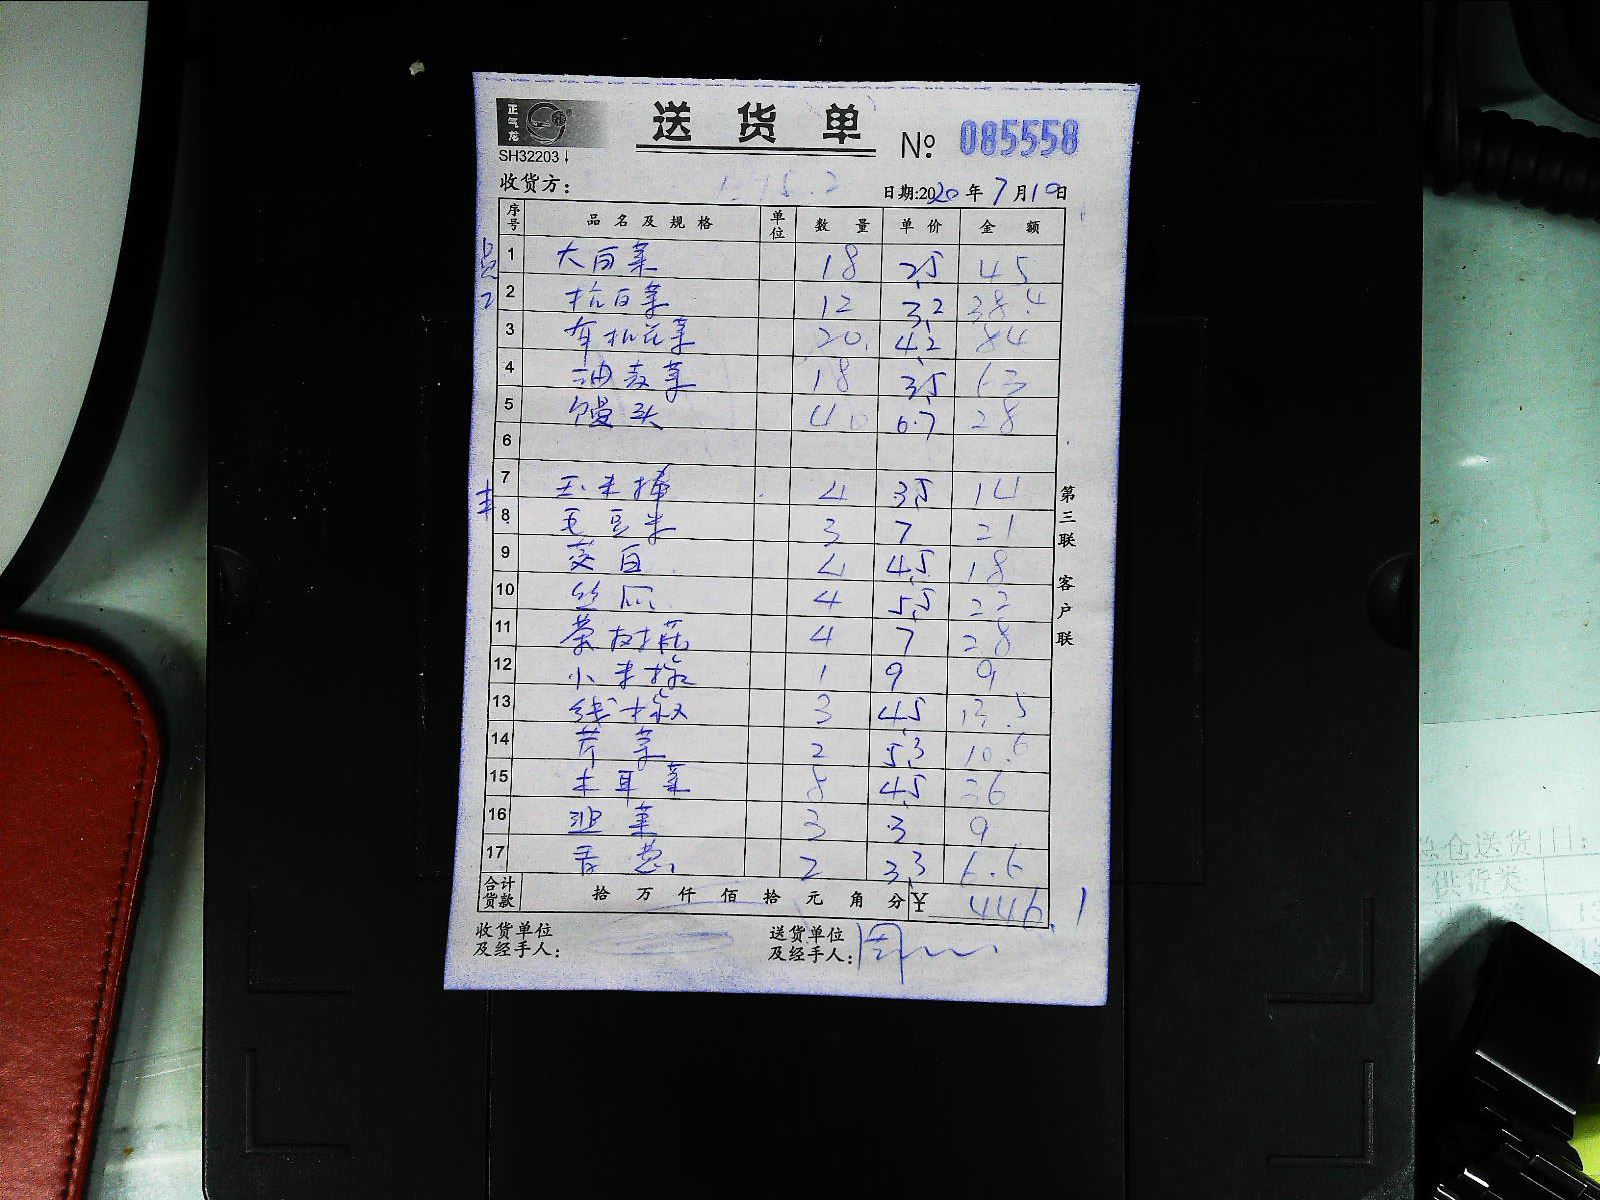 正气龙
送货单
№ 085558
SH32203
收货方:
日期:2020年7月10日
序号 品名及规格 单位 数量 单价 金额
1 大白菜 18 2.5 45
2 杭白菜 12 3.2 38.4
3 有机花菜 20 4.2 84
4 油麦菜 18 3.5 63
5 馒头 40 0.7 28
6
7 玉米棒 4 3.5 14
8 毛豆米 3 7 21
9 茭白 4 4.5 18
10 丝瓜 4 5.5 22
11 茶树菇 4 7 28
12 小米椒 1 9 9
13 线椒 3 4.5 13.5
14 芹菜 2 5.3 10.6
15 木耳菜 8 4.5 36
16 韭菜 3 3 9
17 香葱 2 3.3 6.6
合计货款 拾万仟佰拾元角分 ¥ 446.1
收货单位及经手人:
送货单位及经手人: 周
第三联 客户联
总仓送货
日:
供货类